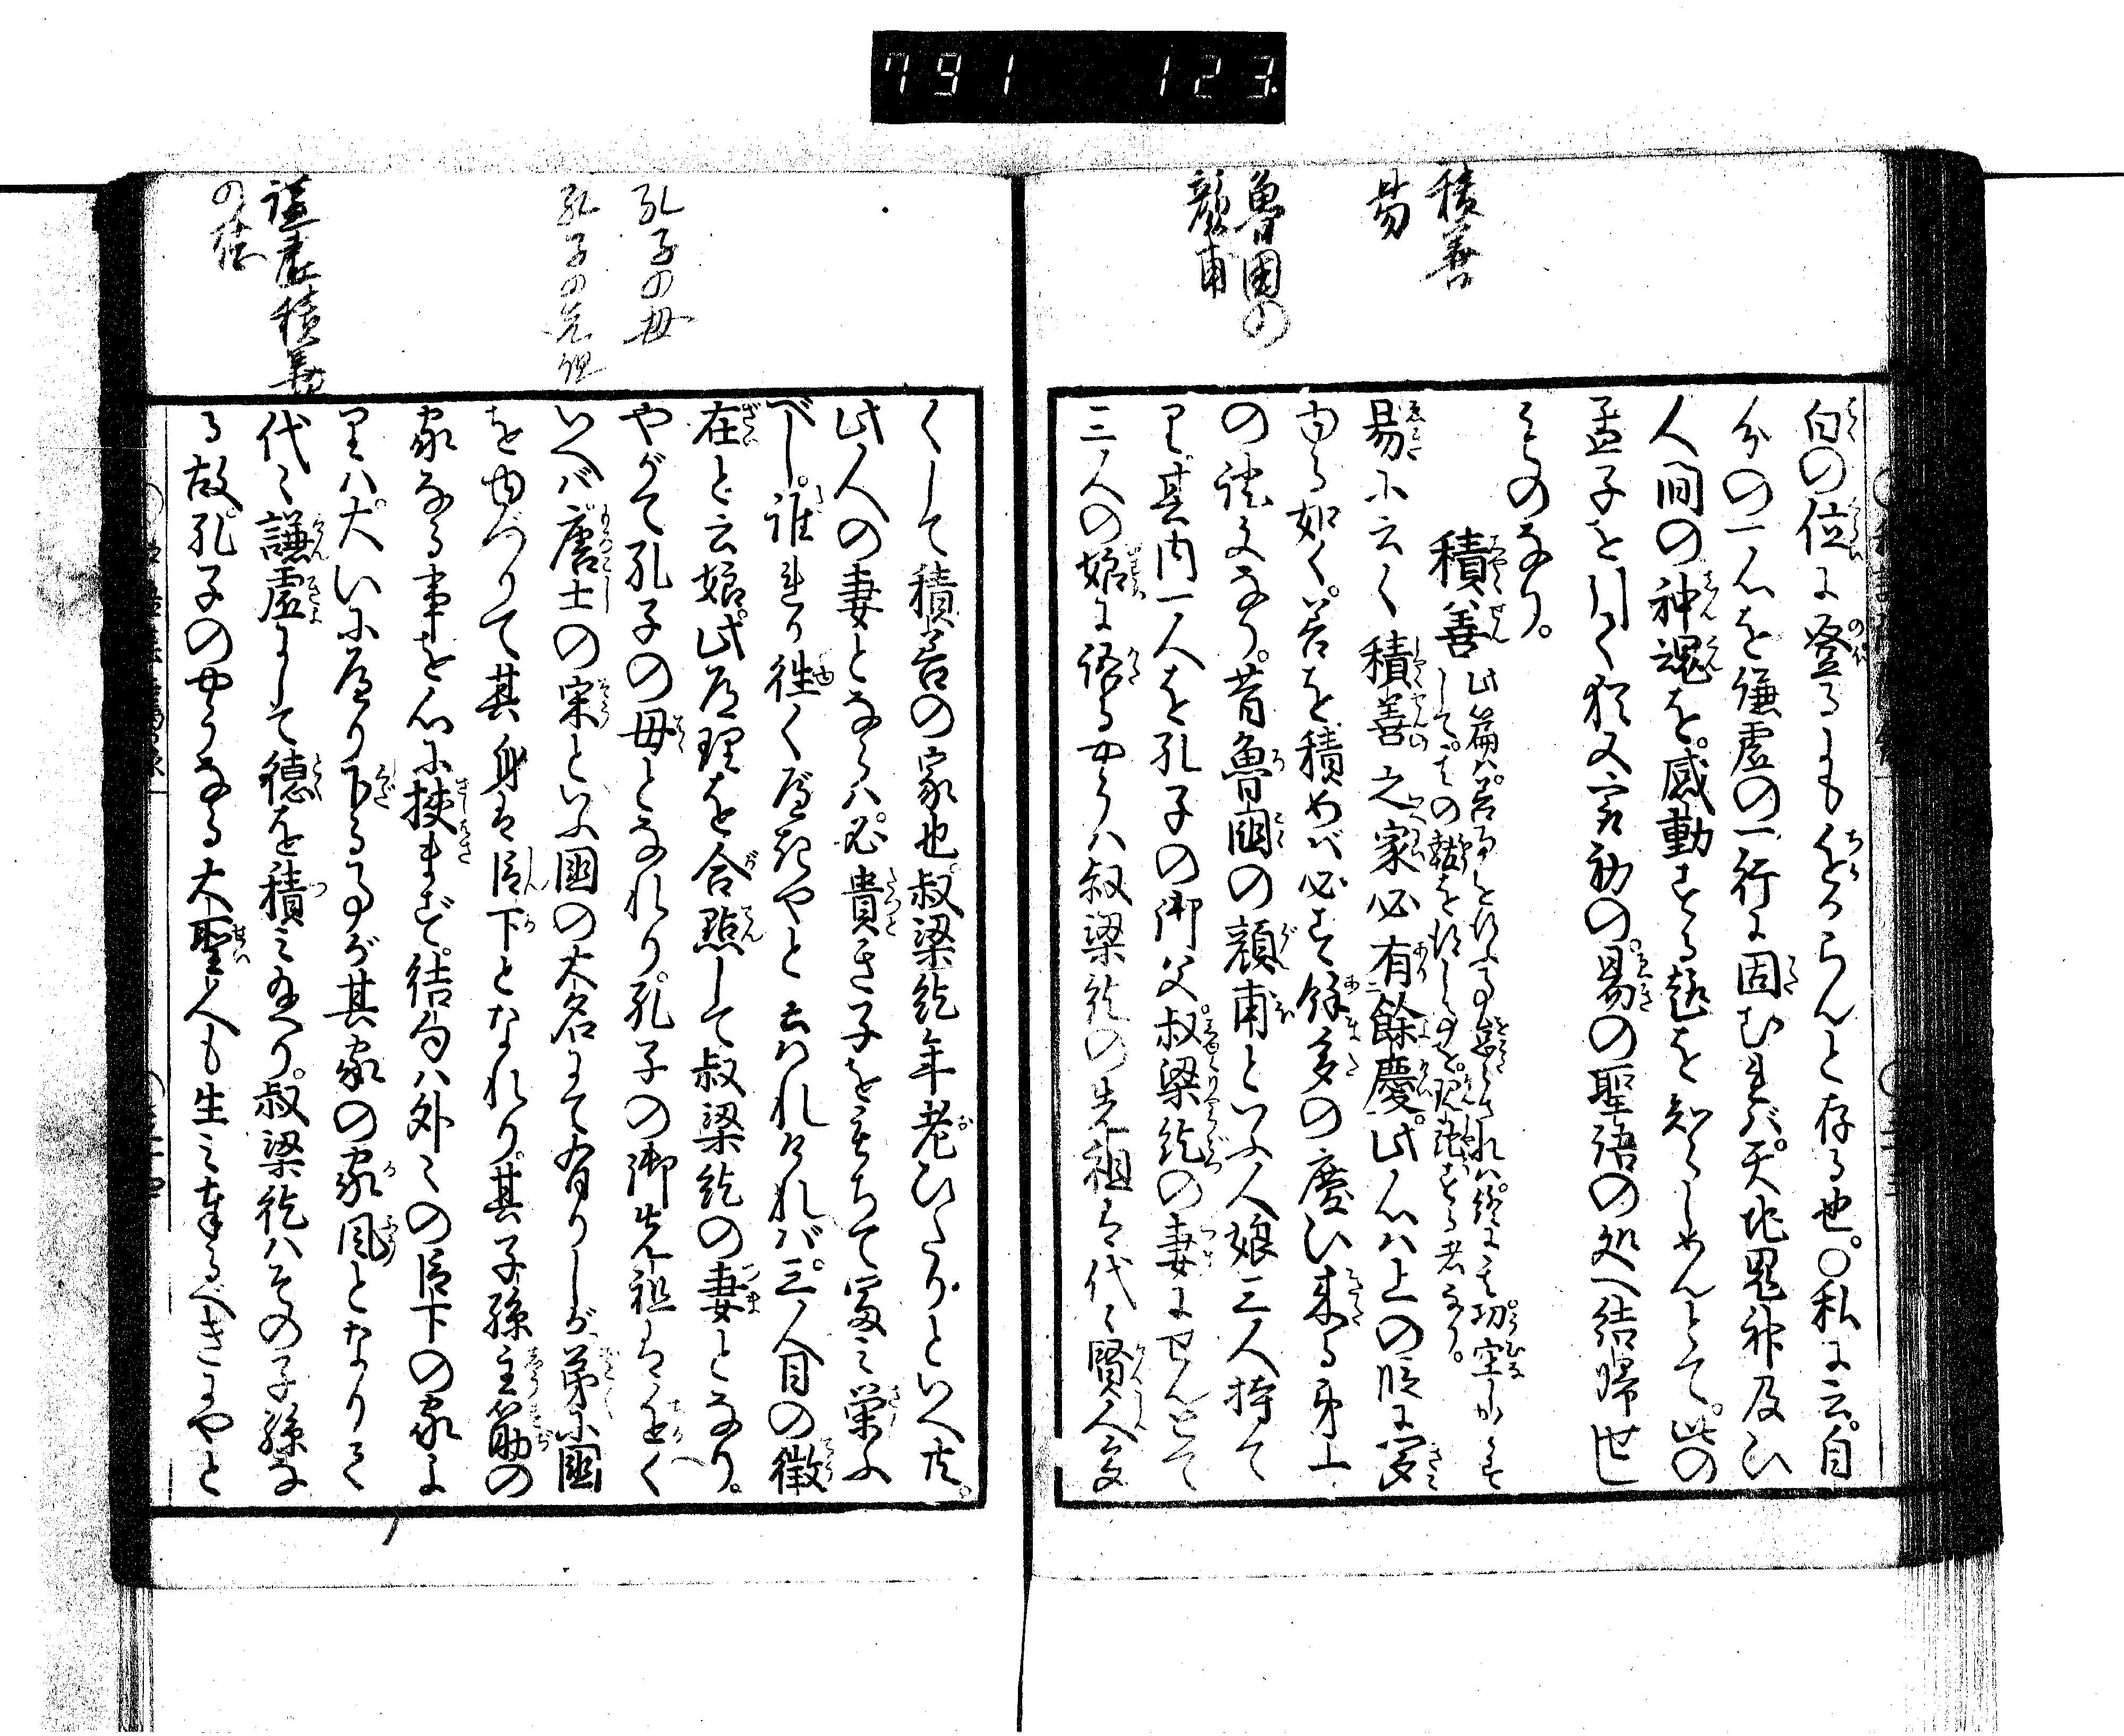 791 123
積善
易
魯国の
顔甫
白の位に登るにも近からんと存る也。○私に云。自
分の一心を謙虚の一行に固むれバ。天地鬼神及ひ
人間の神魂を。感動する趣を知らしめんとて。此の
孟子を引く猶又最初の。易の聖語の処へ結帰せし
ものなり。
積善
此篇ハ。善事を行ふ事
して。その報を
易に云く積善之家必有餘慶。此心ハ上の段に寄
する如く。善を積めバ必ず餘多の慶ひ来る身上
の謙文なり。昔魯国の顔甫といふ人娘三人持て
其内一人を孔子の御父。叔梁紇の妻にせんとて
三人の娘に語るやうハ叔梁紇の先祖は代々賢人多
くして積善の家也。叔梁紇年老ひたりといへ共。
此人の妻とならハ。必貴き子をもちて富み栄ふ
べし。誰れか往く可きやと云はれけれバ。三人目の徴
在と云娘。此道理を合點して叔梁紇の妻となり。
やがて孔子の母となれり。孔子の御先祖は近く
いへバ唐土の宋といふ國の大名にて有りしが。弟に國
をゆづりて其身は臣下となれり。其子孫主筋の
家なる事を心に挟まず。結句ハ外々の臣下の家よ
りハ。大いに遜り下る事が其家の家風となりて
代々謙虚にして徳を積み玉へり。叔梁紇ハその子孫な
る故。孔子のやうなる大聖人も生み奉るべきにやと
孔子の母
孔子の先祖
謙虚積善
の徳